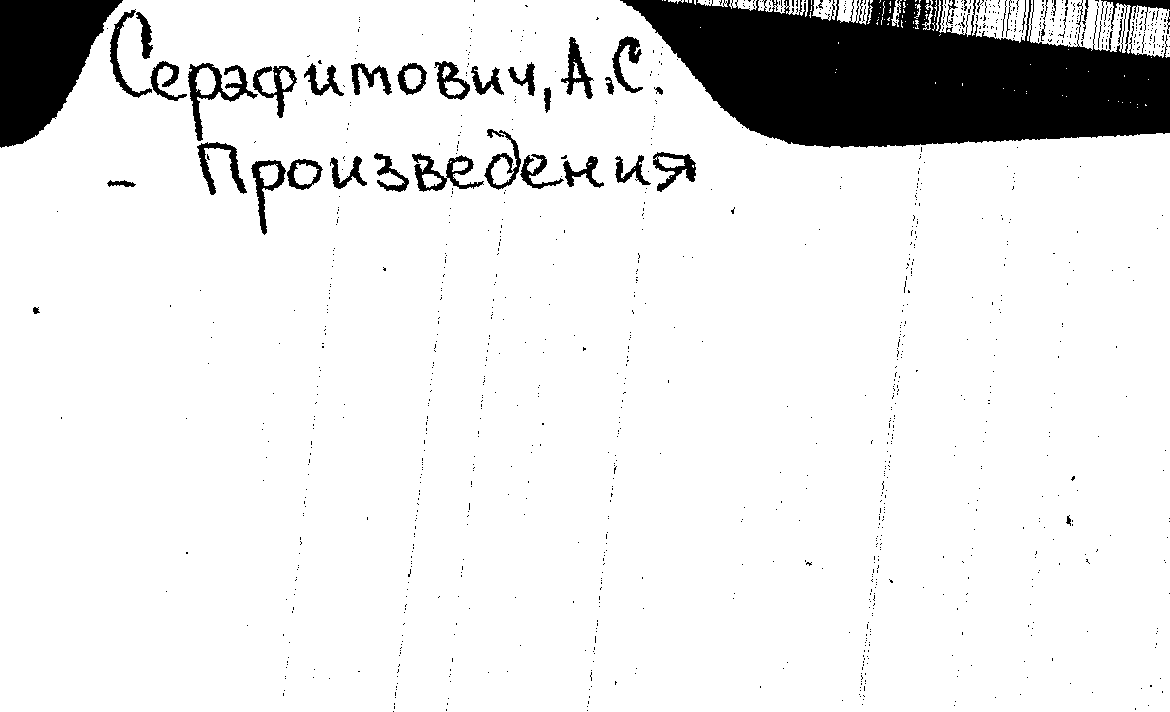 Серафимович, А.С.
- Произведения